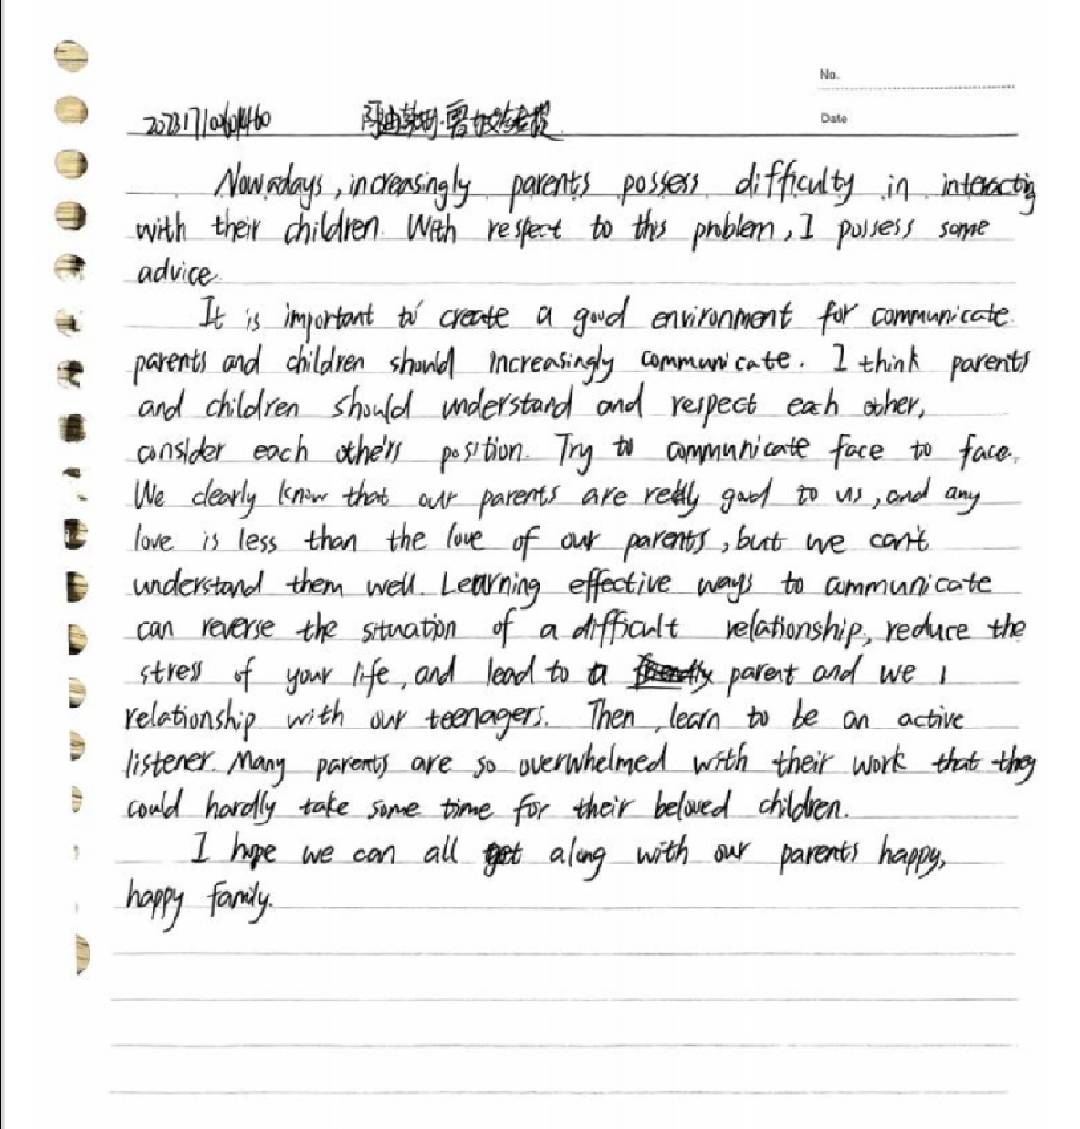 No.
Date
Nowadays, increasingly parents possess difficulty in interacting
with their children. With respect to this problem, I possess some
advice.
It is important to create a good environment for communicate.
parents and children should increasingly communicate. I think parents
and children should understand and respect each other,
consider each other's position. Try to communicate face to face.
We clearly know that our parents are really good to us, and any
love is less than the love of our parents, but we can't
understand them well. Learning effective ways to communicate
can reverse the situation of a difficult relationship, reduce the
stress of your life, and lead to a parent and we
relationship with our teenagers. Then, learn to be an active
listener. Many parents are so overwhelmed with their work that they
could hardly take some time for their beloved children.
I hope we can all get along with our parents happy,
happy family.